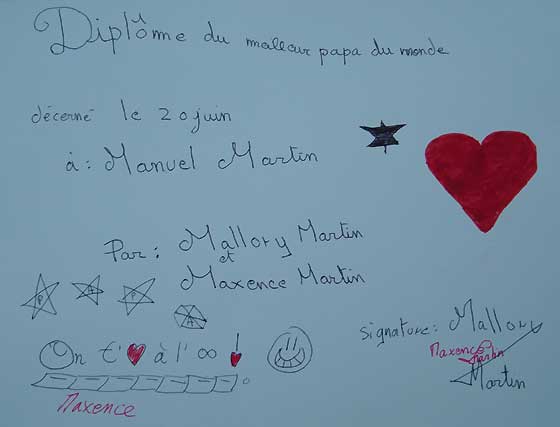 Diplôme du malleur papa du monde
décerné le 20 juin
à : Manuel Martin
Par : Mallory Martin
et
Maxence Martin
P A P A
On t'❤ à l'∞ !
Maxence
signature : Mallory
Maxence Martin
Martin